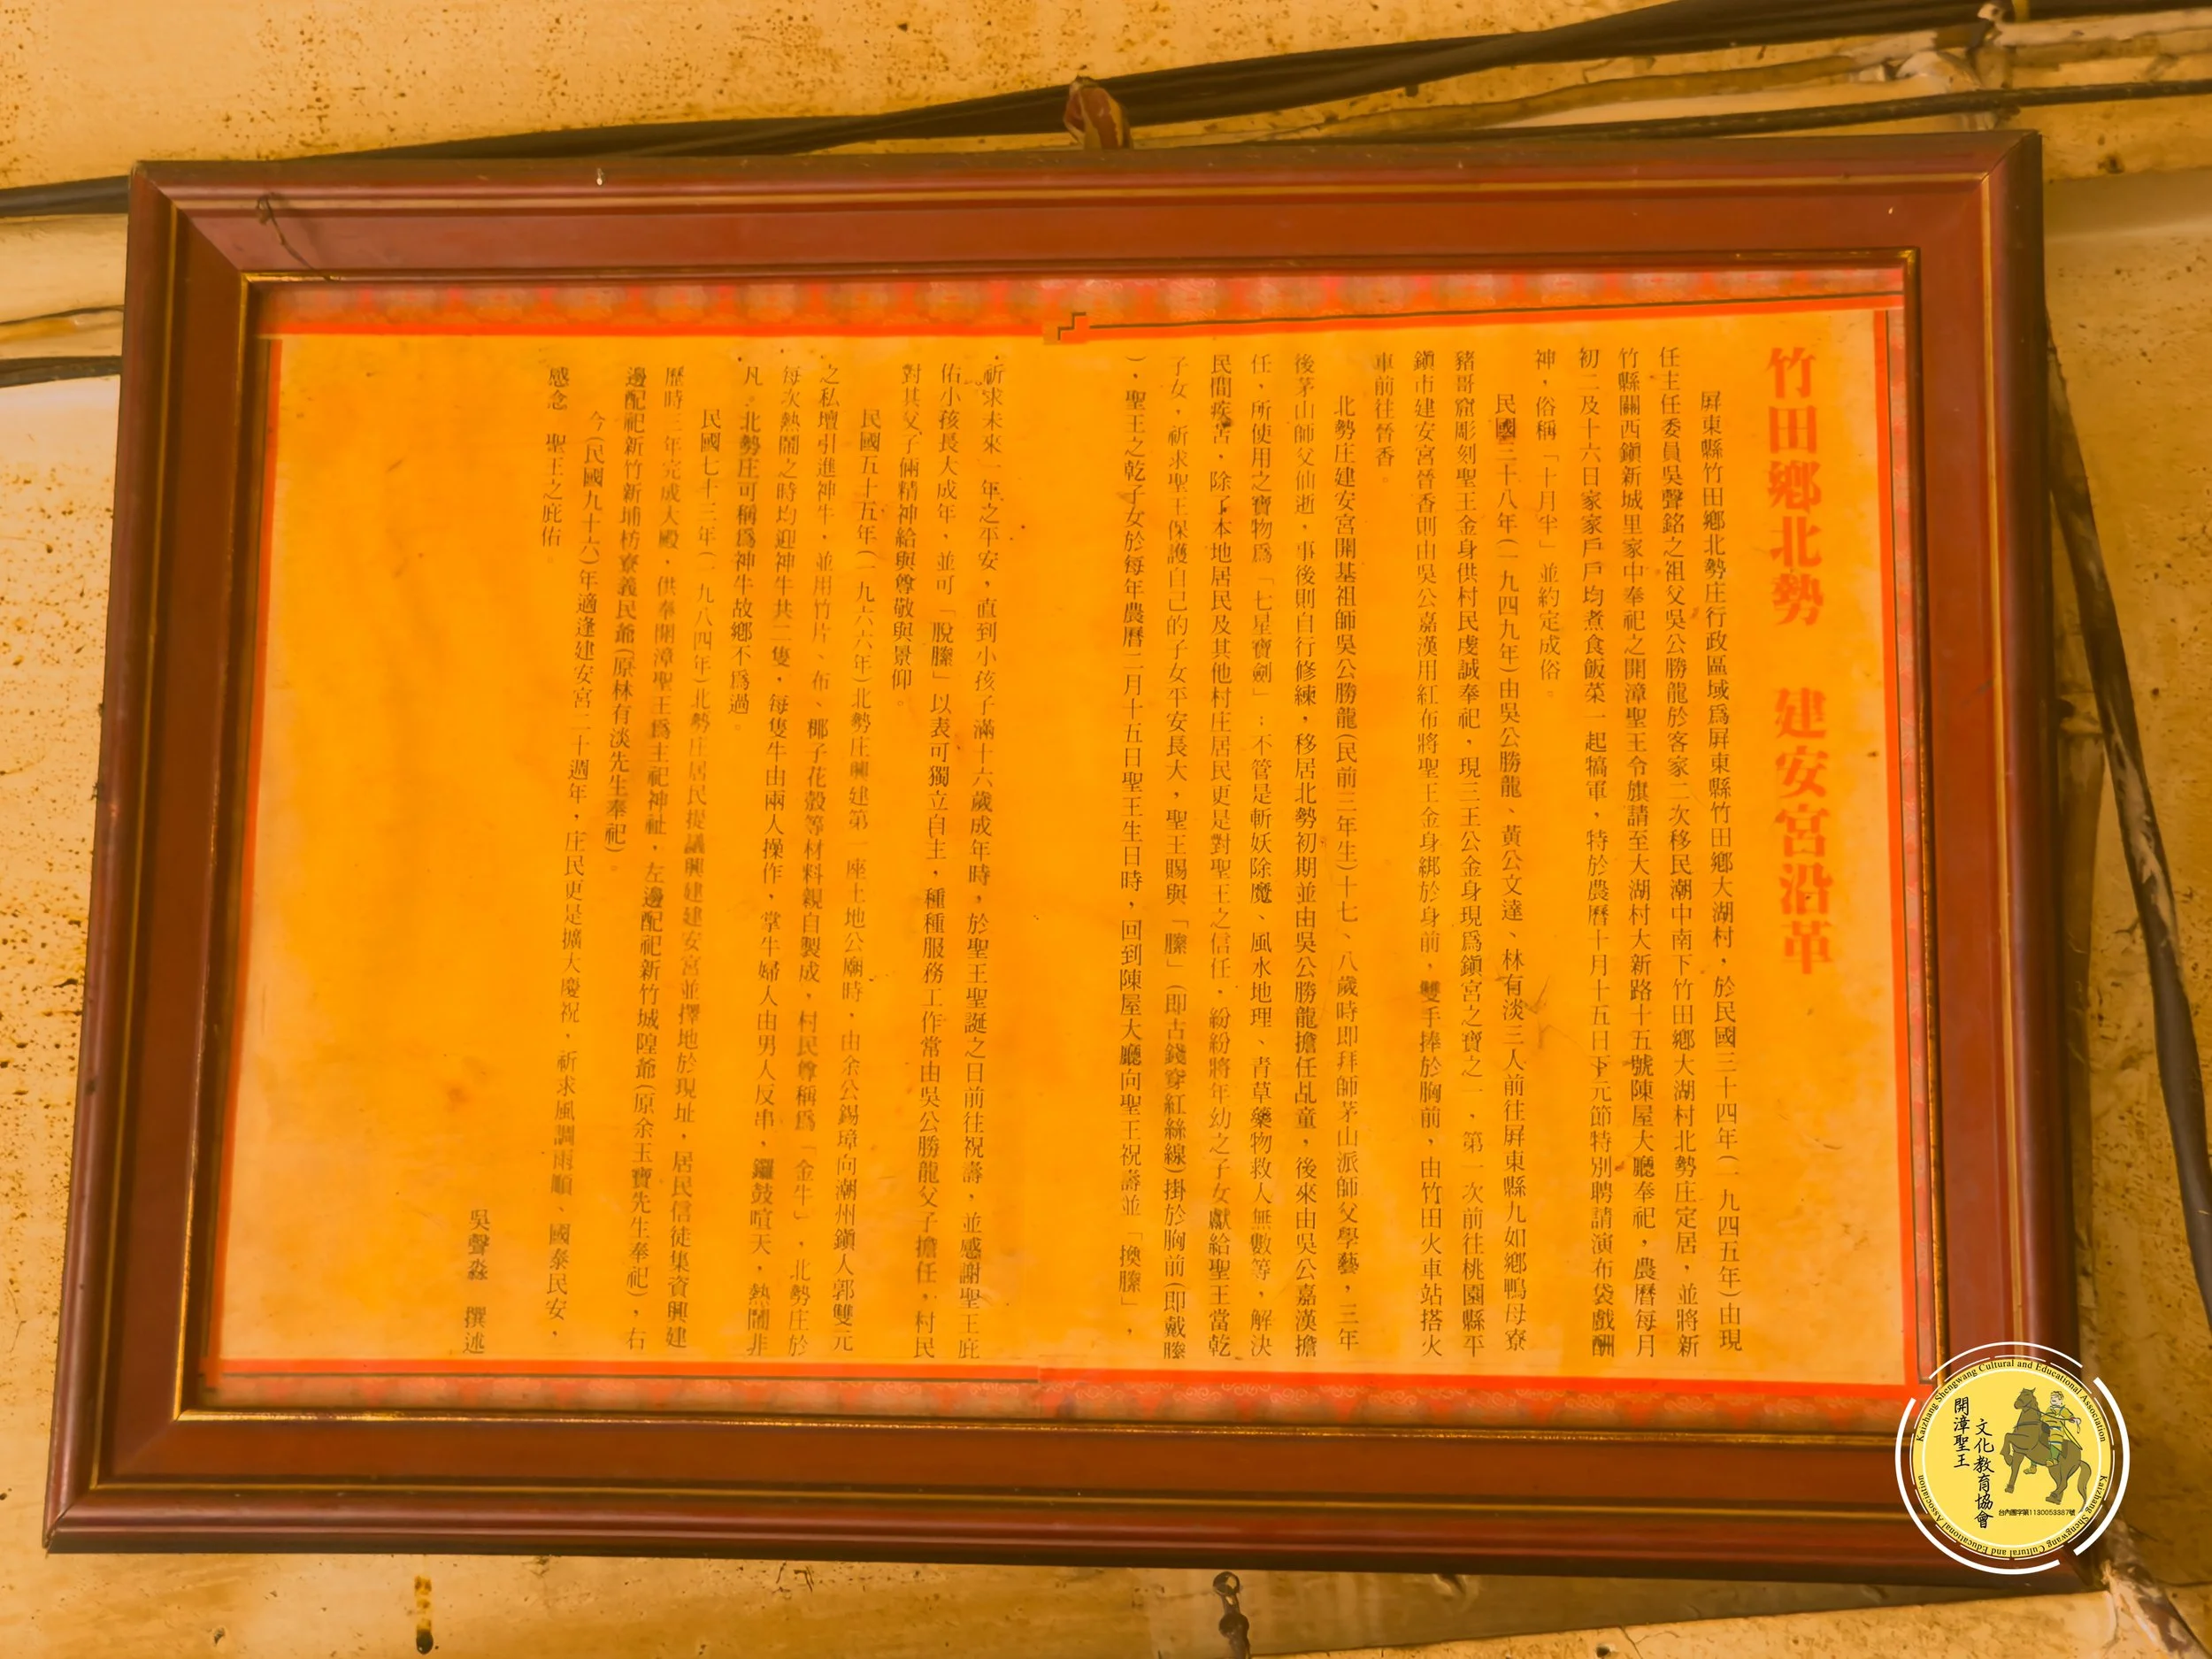 竹田鄉北勢　建安宮沿革
屏東縣竹田鄉北勢庄行政區域為屏東縣竹田鄉大湖村，於民國三十四年(一九四五年)由現
任主任委員吳聲銘之祖父吳公勝龍於客家二次移民潮中南下竹田鄉大湖村北勢庄定居，並將新
竹縣關西鎮新城里家中奉祀之開漳聖王令旗請至大湖村大新路十五號陳屋大廳奉祀，農曆每月
初二及十六日家家戶戶均煮食飯菜一起犒軍，特於農曆十月十五日下元節特別聘請演布袋戲酬
神，俗稱「十月半」並約定成俗。
民國三十八年(一九四九年)由吳公勝龍、黃公文達、林有淡三人前往屏東縣九如鄉鴨母寮
豬哥窟彫刻聖王金身供村民虔誠奉祀，現三王公金身現為鎮宮之寶之一，第一次前往桃園縣平
鎮市建安宮晉香則由吳公嘉漢用紅布將聖王金身綁於身前，雙手捧於胸前，由竹田火車站搭火
車前往晉香。
北勢庄建安宮開基祖師吳公勝龍(民前三年生)十七、八歲時即拜師茅山派師父學藝，三年
後茅山師父仙逝，事後則自行修練，移居北勢初期並由吳公勝龍擔任乩童，後來由吳公嘉漢擔
任，所使用之寶物為「七星寶劍」；不管是斬妖除魔、風水地理、青草藥物救人無數等，解決
民間疾苦，除了本地居民及其他村庄居民更是對聖王之信任，紛紛將年幼之子女獻給聖王當乾
子女，祈求聖王保護自己的子女平安長大，聖王賜與「縢」(即古錢穿紅絲線)掛於胸前(即戴縢
)，聖王之乾子女於每年農曆二月十五日聖王生日時，回到陳屋大廳向聖王祝壽並「換縢」，
祈求未來一年之平安，直到小孩子滿十六歲成年時，於聖王聖誕之日前往祝壽，並感謝聖王庇
佑小孩長大成年，並可「脫縢」以表可獨立自主，種種服務工作常由吳公勝龍父子擔任，村民
對其父子倆精神給與尊敬與景仰。
民國五十五年(一九六六年)北勢庄興建第一座土地公廟時，由余公錫璋向潮州鎮人郭雙元
之私壇引進神牛，並用竹片、布、椰子花殼等材料親自製成，村民尊稱為「金牛」，北勢庄於
每次熱鬧之時均迎神牛共二隻，每隻牛由兩人操作，掌牛婦人由男人反串，鑼鼓喧天，熱鬧非
凡。北勢庄可稱為神牛故鄉不為過。
民國七十三年(一九八四年)北勢庄居民提議興建建安宮並擇地於現址，居民信徒集資興建
歷時三年完成大殿，供奉開漳聖王為主祀神祉，左邊配祀新竹城隍爺(原余玉寶先生奉祀)，右
邊配祀新竹新埔枋寮義民爺(原林有淡先生奉祀)。
今(民國九十六)年適逢建安宮二十週年，庄民更是擴大慶祝，祈求風調雨順、國泰民安，
感念　聖王之庇佑。
吳聲淼　撰述
開漳聖王
文化教育協會
台內團字第1130053387號
Kaizhang Shengwang Cultural and Educational Association
Kaizhang Shengwang Cultural and Educational Association